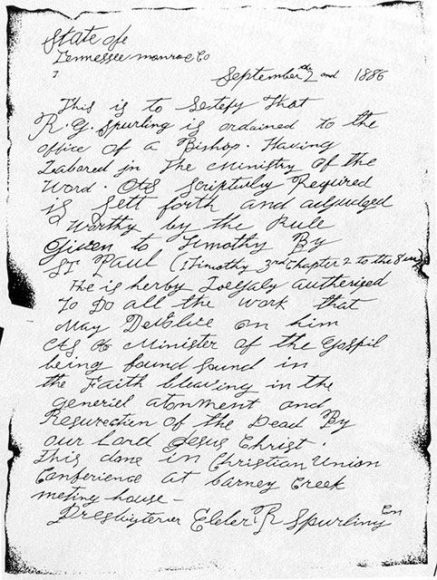 State of
Tennessee monroe Co
September 2 nd 1886
This is to Setefy that
R. G. Spurling is ordained to the
office of a Bishop. Having
Labored in The Ministry of the
Word. As Scriptuly Required
is Sett forth and adjudged
Worthy by the Rule
Given to Timothy By
ST Paul (1 Timothy 3rd Chapter 2 to the 8
He is herby Loelfaly autherised
To Do all the Work that
May Delolve on him
As A Minister of the Gospil
being found Sound in
the Faith bleaving in the
generiel atonment and
Resurection of the Dead By
our Lord Jesus Christ.
This done in Christian Union
Conference at barney Creek
meting house -
Presbyterer Elder R Spurling